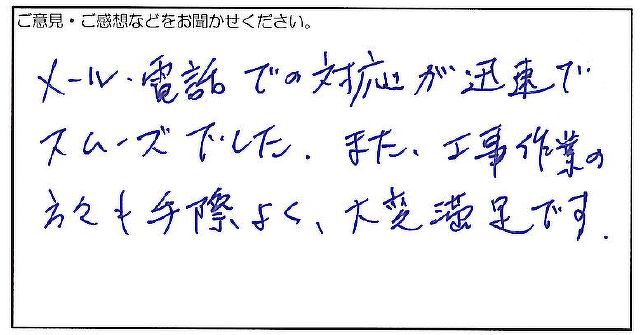 ご意見・ご感想などをお聞かせください。
メール・電話での対応が迅速で
スムーズでした。また、工事作業の
方々も手際よく、大変満足です。